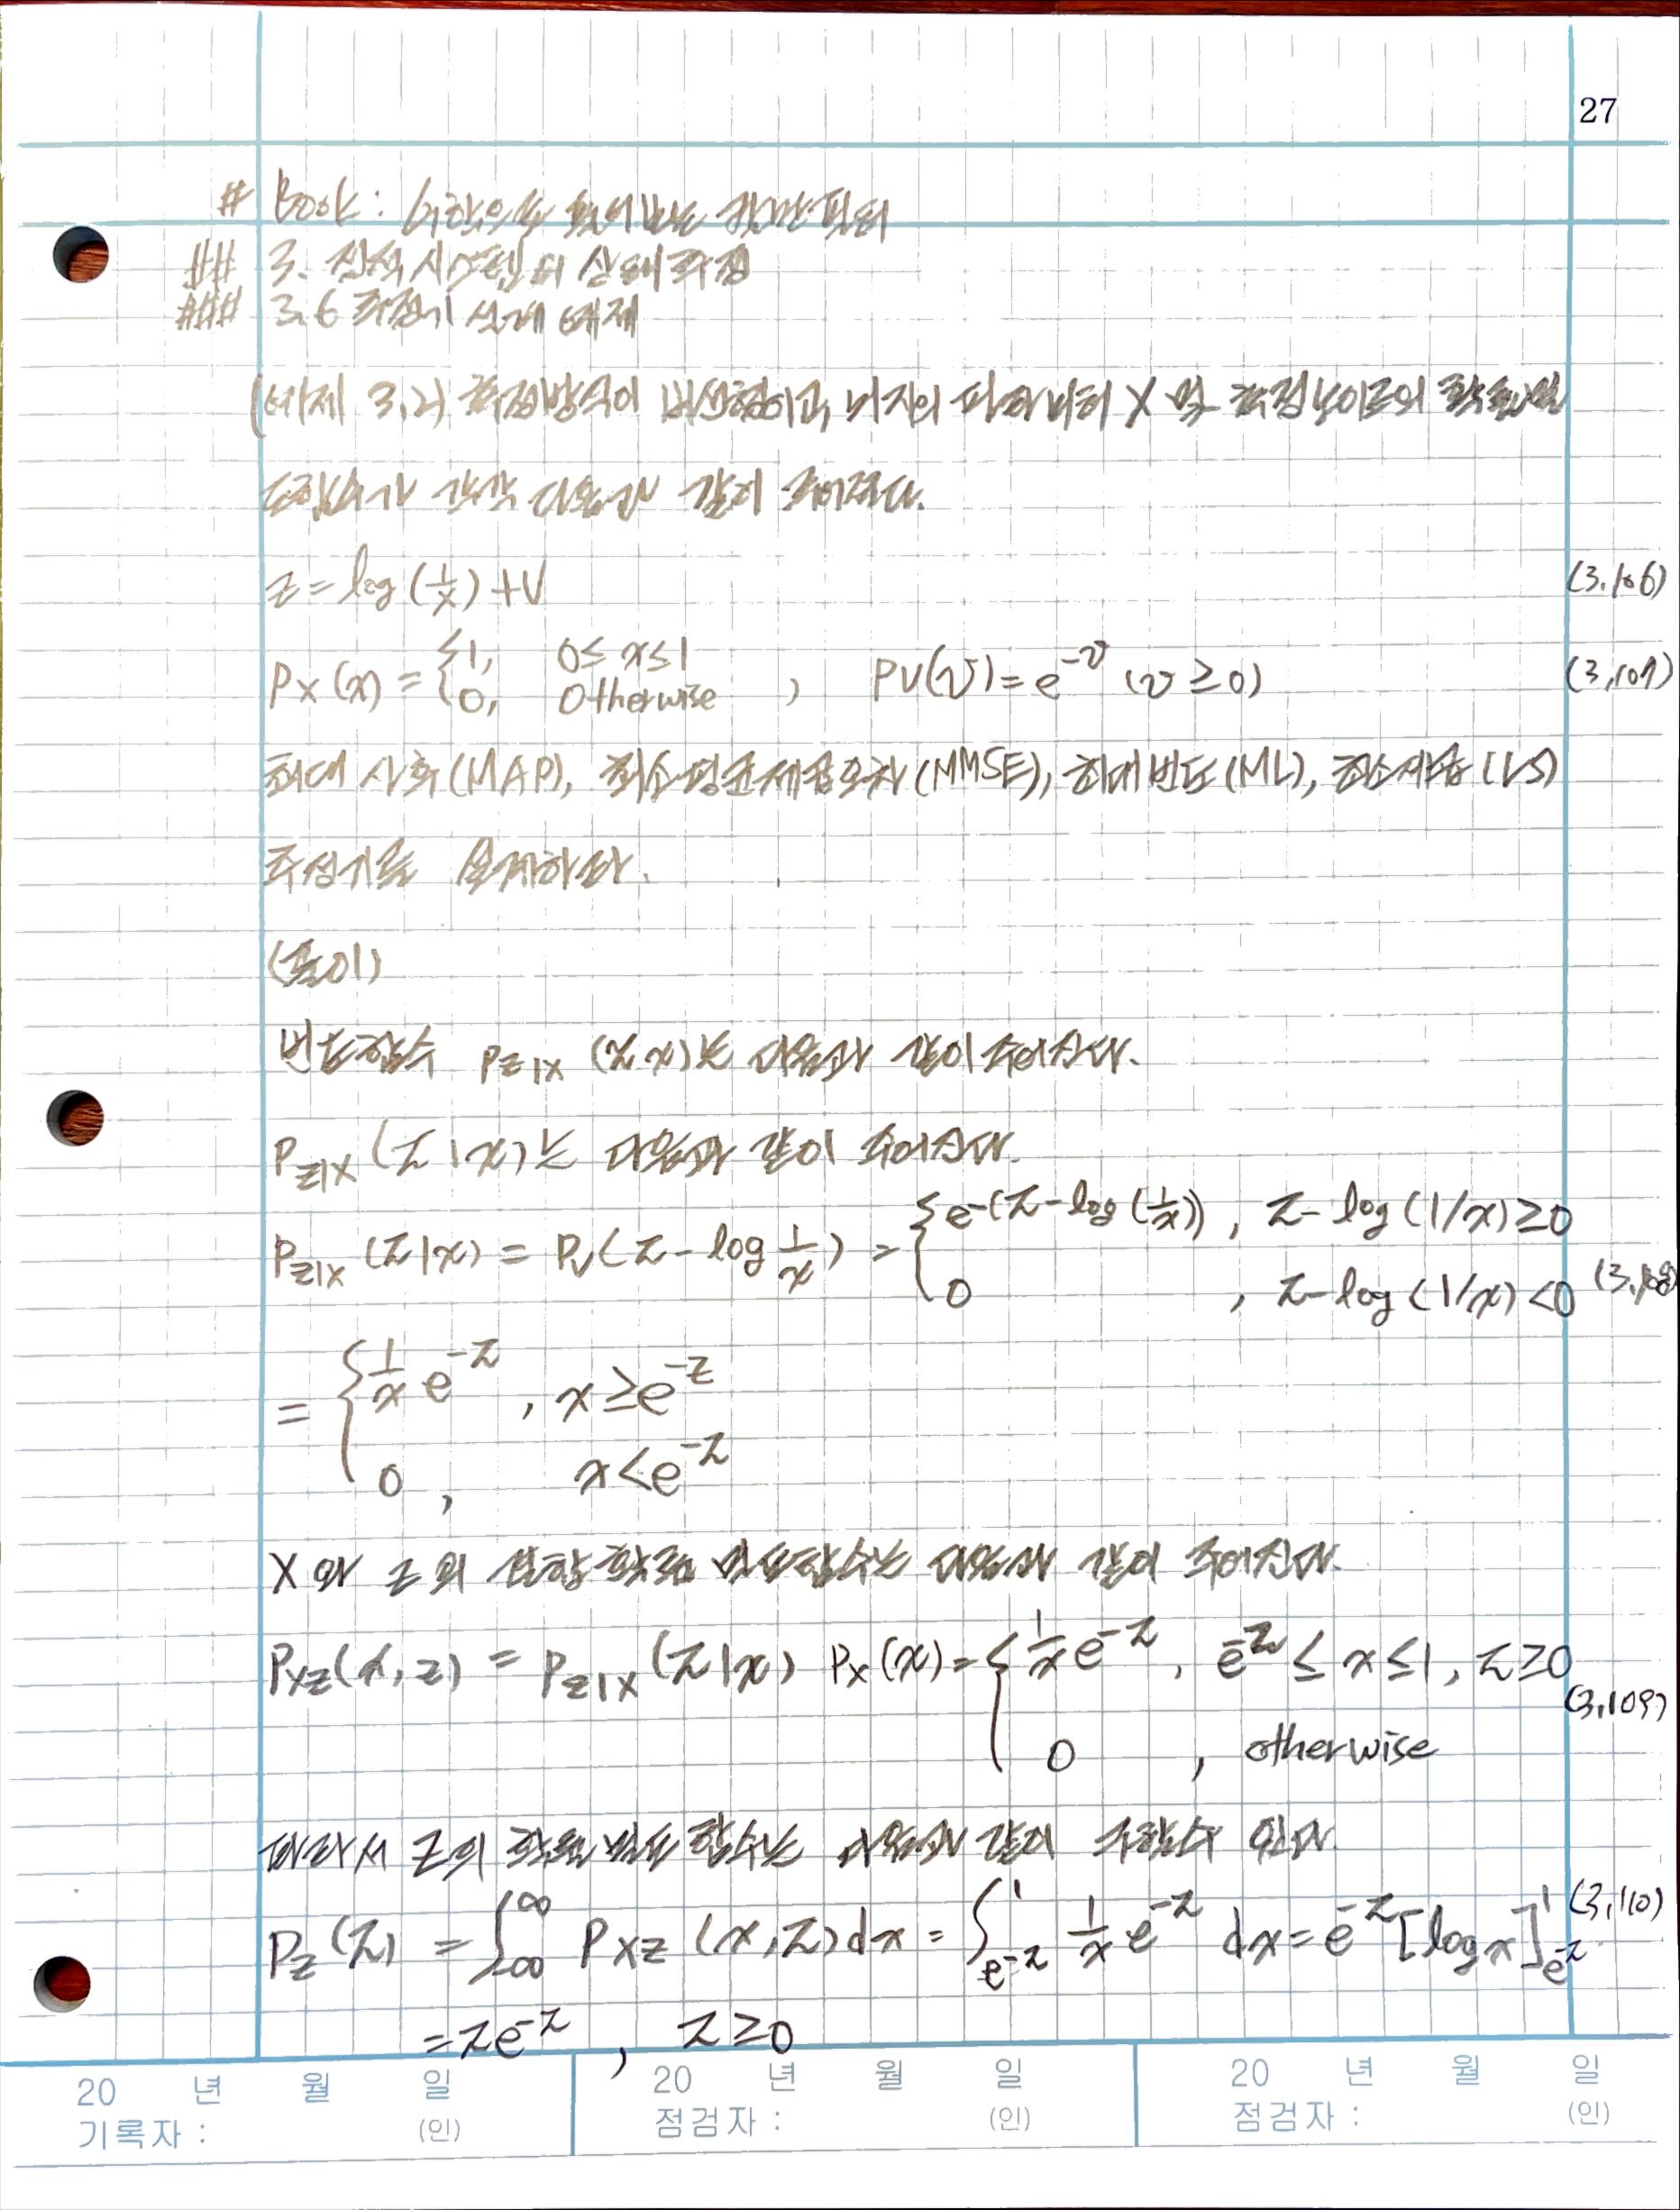 27
# Book: 수학으로 풀어보는 칼만필터
## 3. 정적 시스템의 상태 추정
### 3.6 추정기 설계 예제
(예제 3.2) 측정방식이 비선형이고, 미지의 파라미터 X 및 측정노이즈의 확률밀
도함수가 각각 다음과 같이 주어졌다.
z = log(1/x) + V (3.106)
P_X(x) = { 1, 0 ≤ x ≤ 1 ; 0, otherwise , P_V(v) = e^{-v} (v ≥ 0) (3.107)
최대 사후(MAP), 최소평균제곱오차(MMSE), 최대빈도(ML), 최소제곱(LS)
추정기를 설계하라.
(풀이)
빈도함수 P_{Z|X}(z x)는 다음과 같이 주어진다.
P_{Z|X}(z|x)는 다음과 같이 주어진다.
P_{Z|X}(z|x) = P_V(z - log 1/x) = { e^{-(z - log(1/x))}, z - log(1/x) ≥ 0 ; 0, z - log(1/x) < 0 (3.108)
= { 1/x e^{-z}, x ≥ e^{-z} ; 0, x < e^{-z}
X와 Z의 결합 확률 밀도함수는 다음과 같이 주어진다.
P_{XZ}(x, z) = P_{Z|X}(z|x) P_X(x) = { 1/x e^{-z}, e^{-z} ≤ x ≤ 1, z ≥ 0 ; 0, otherwise (3.109)
따라서 Z의 확률 밀도 함수는 다음과 같이 구할 수 있다.
P_Z(z) = ∫_{∞}^{∞} P_{XZ}(x, z)dx = ∫_{e^{-z}}^{1} 1/x e^{-z} dx = e^{-z}[log x]_{e^{-z}}^{1} (3.110)
= ze^{-z}, z ≥ 0
20 년 월 일 20 년 월 일 20 년 월 일
기록자 : (인) 점검자 : (인) 점검자 : (인)